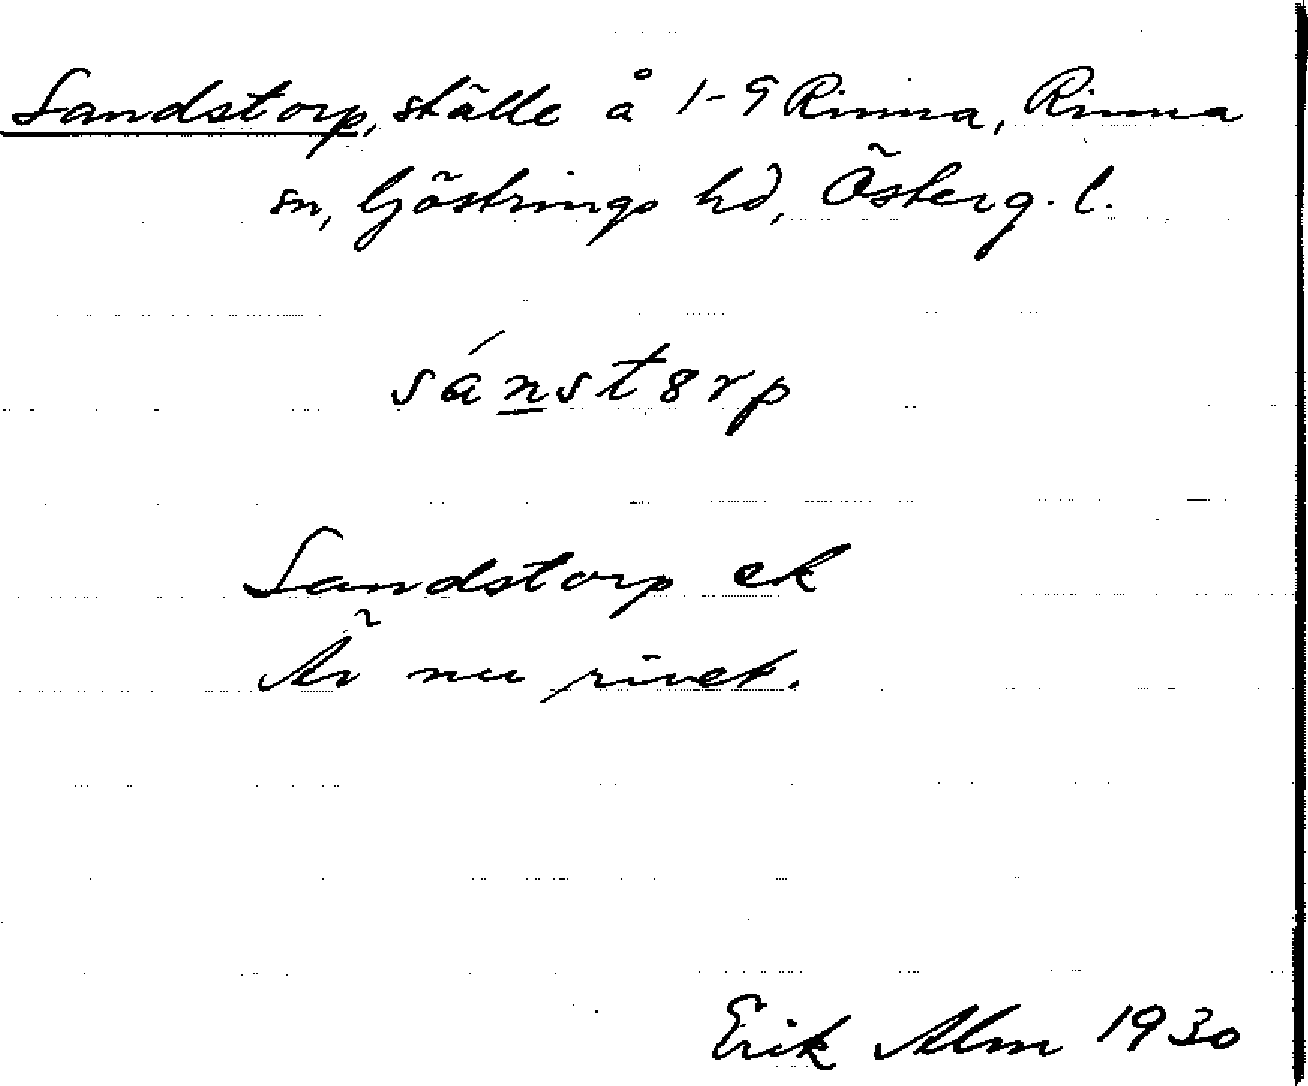 Sandstorp, ställe å 1-9 Rinna, Rinna
sn, Göstrings hd, Österg. l.
sánst8rp
Sandstorp ek
Är nu rivet.
Erik Alm 1930